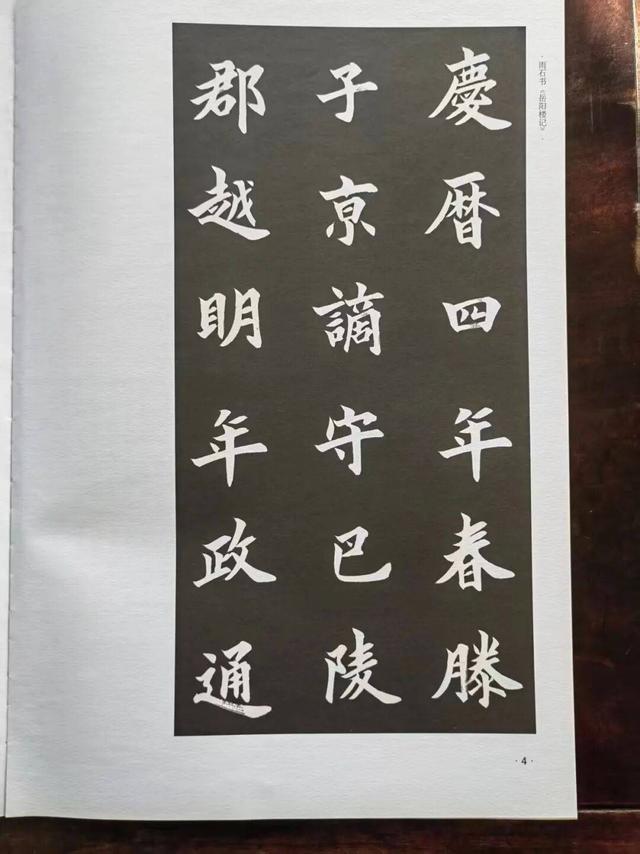 慶暦四年春滕
子京謫守巴陵
郡越明年政通
·雨石书《岳阳楼记》·
·4·